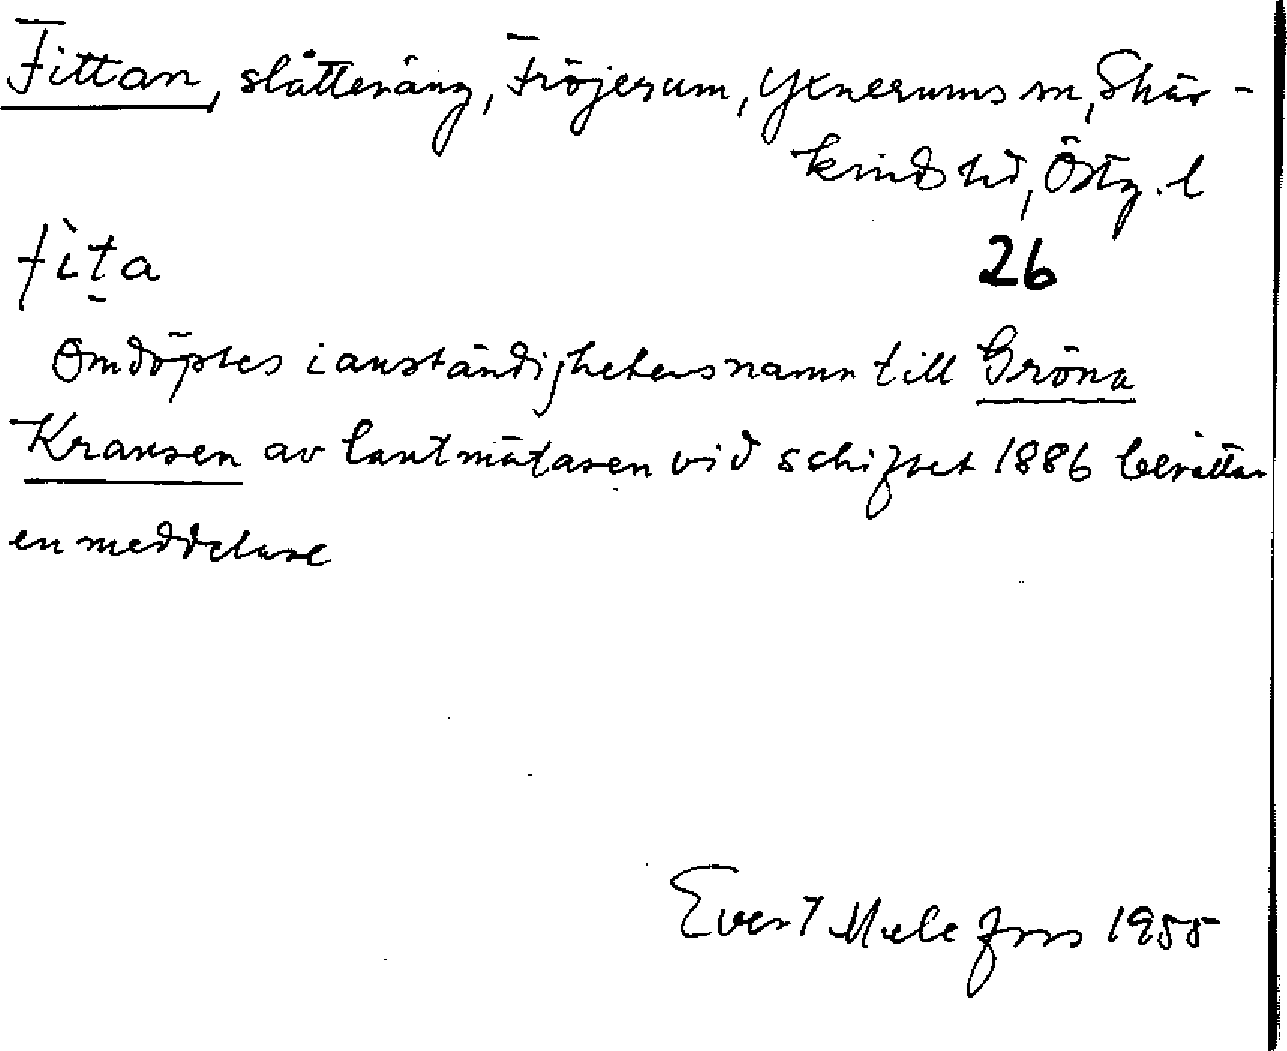 Fittan, slåtteräng, Fröjerum, Yxnerums sn, Skär-
kinds hd, Östg. l
fìt̠a
26
Omdöptes i anständighetens namn till Gröna
Kransen av lantmätaren vid schiftet 1886 berättar
en meddelare
Evert Melefors 1955